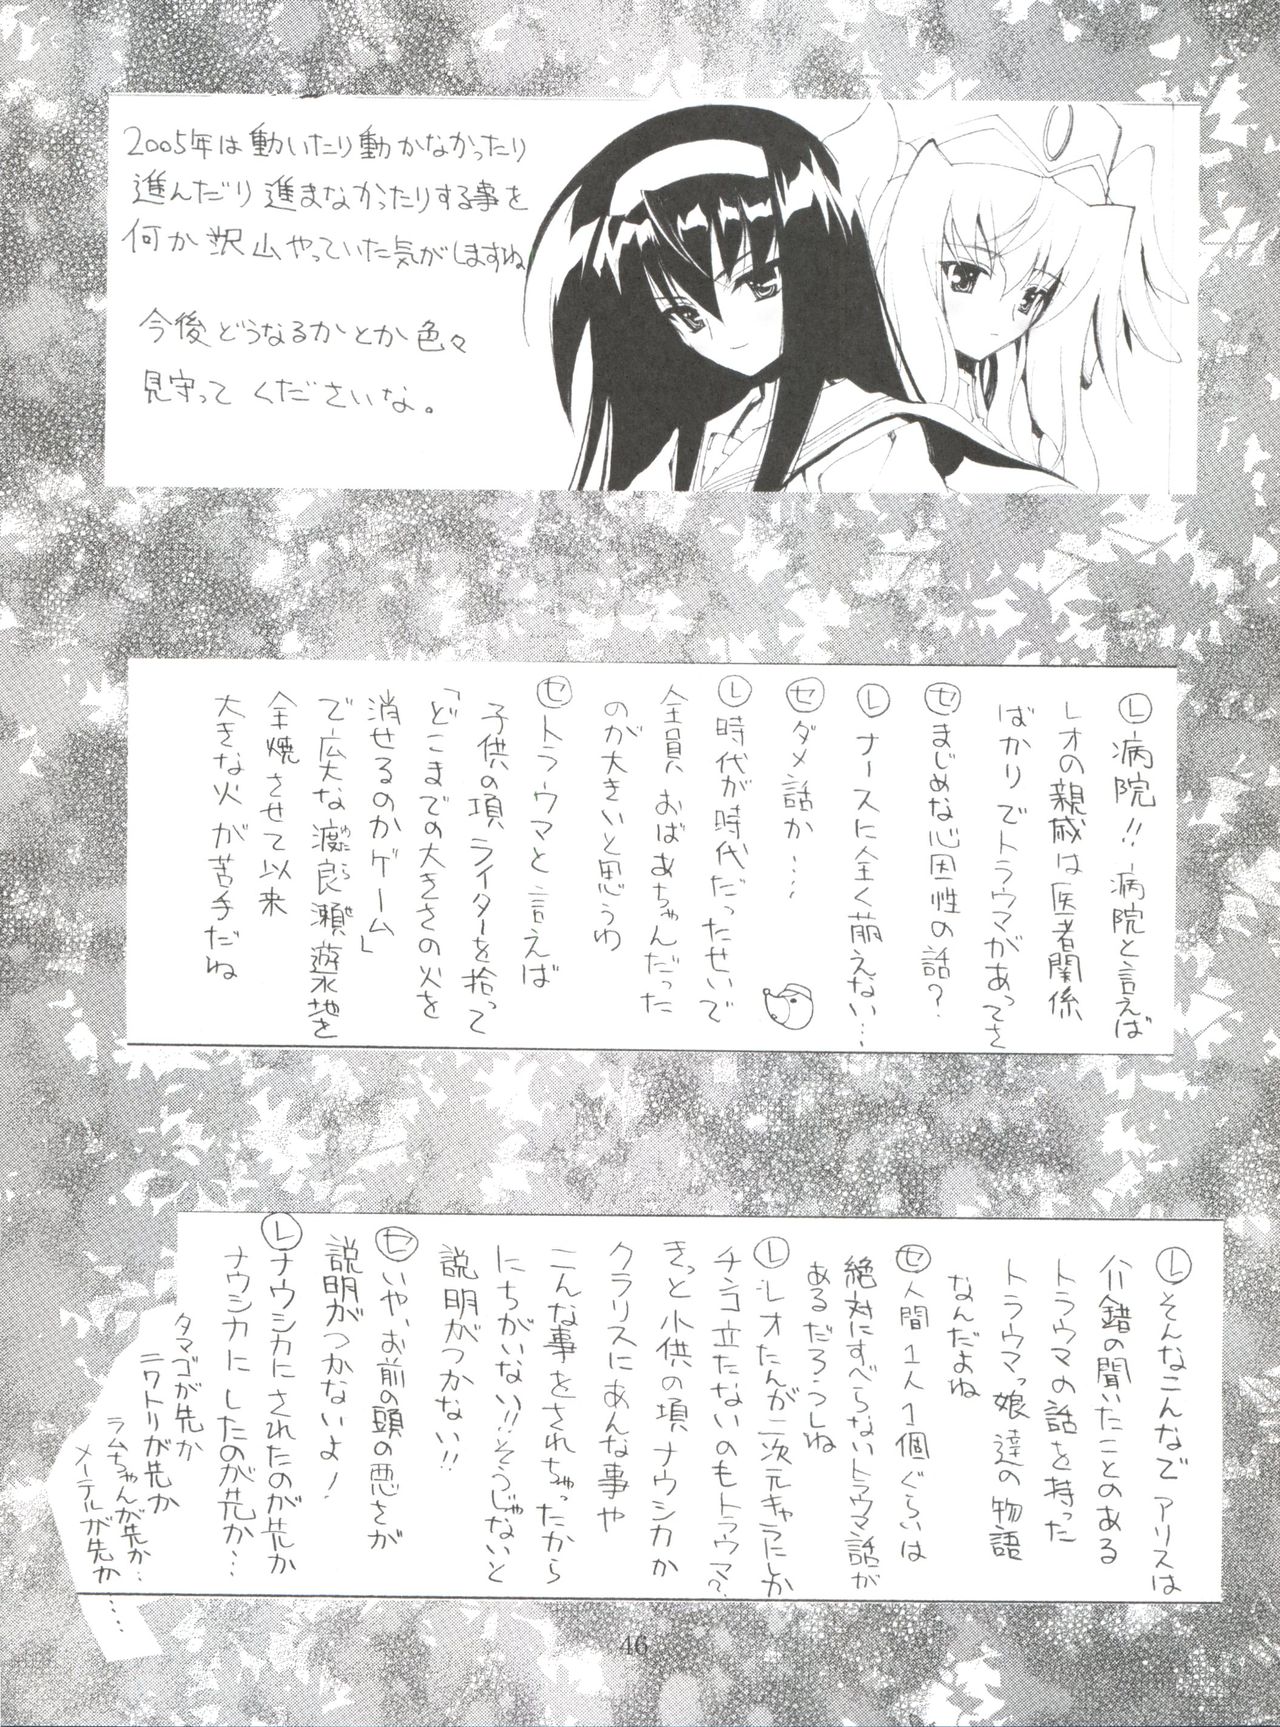 2005年は動いたり動かなかったり
進んだり進まなかったりする事を
何か沢山やっていた気がしますね
今後どうなるかとか色々
見守ってくださいな。
レ 病院!!病院と言えば
レオの親戚は医者関係
ばかりでトラウマがあってさ
セ まじめな心因性の話?
レ ナースに全く萌えない…
セ ダメ話か….
レ 時代が時代だったせいで
全員おばあちゃんだった
のが大きいと思うわ
セ トラウマと言えば
子供の項ライターを拾って
「どこまでの大きさの火を
消せるのかゲーム」
で広大な渡良瀬遊水地を
全焼させて以来
大きな火が苦手だね
レ そんなこんなでアリスは
介錯の聞いたことのある
トラウマの話を持った
トラウマっ娘達の物語
なんだよね
セ 人間1人1個ぐらいは
絶対にすべらないトラウマ話が
あるだろうしね
レ レオたんが二次元キャラにしか
チンコ立たないのもトラウマ?
きっと小供の項ナウシカか
クラリスにあんな事や
こんな事をされちゃったから
にちがいない!!そうじゃないと
説明がつかない!!
セ いや、お前の頭の悪さが
説明がつかないよ!
レ ナウシカにされたのが先か
ナウシカにしたのが先か…
タマゴが先か
ニワトリが先か
ラムちゃんが先か…
メーテルが先か……
46